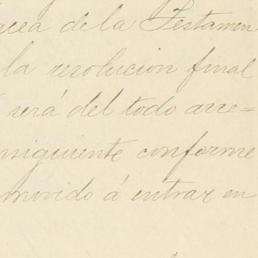 acea de la Testamen
la resolucion final
será del todo arre=
nsiguiente conforme
movido á entrar en